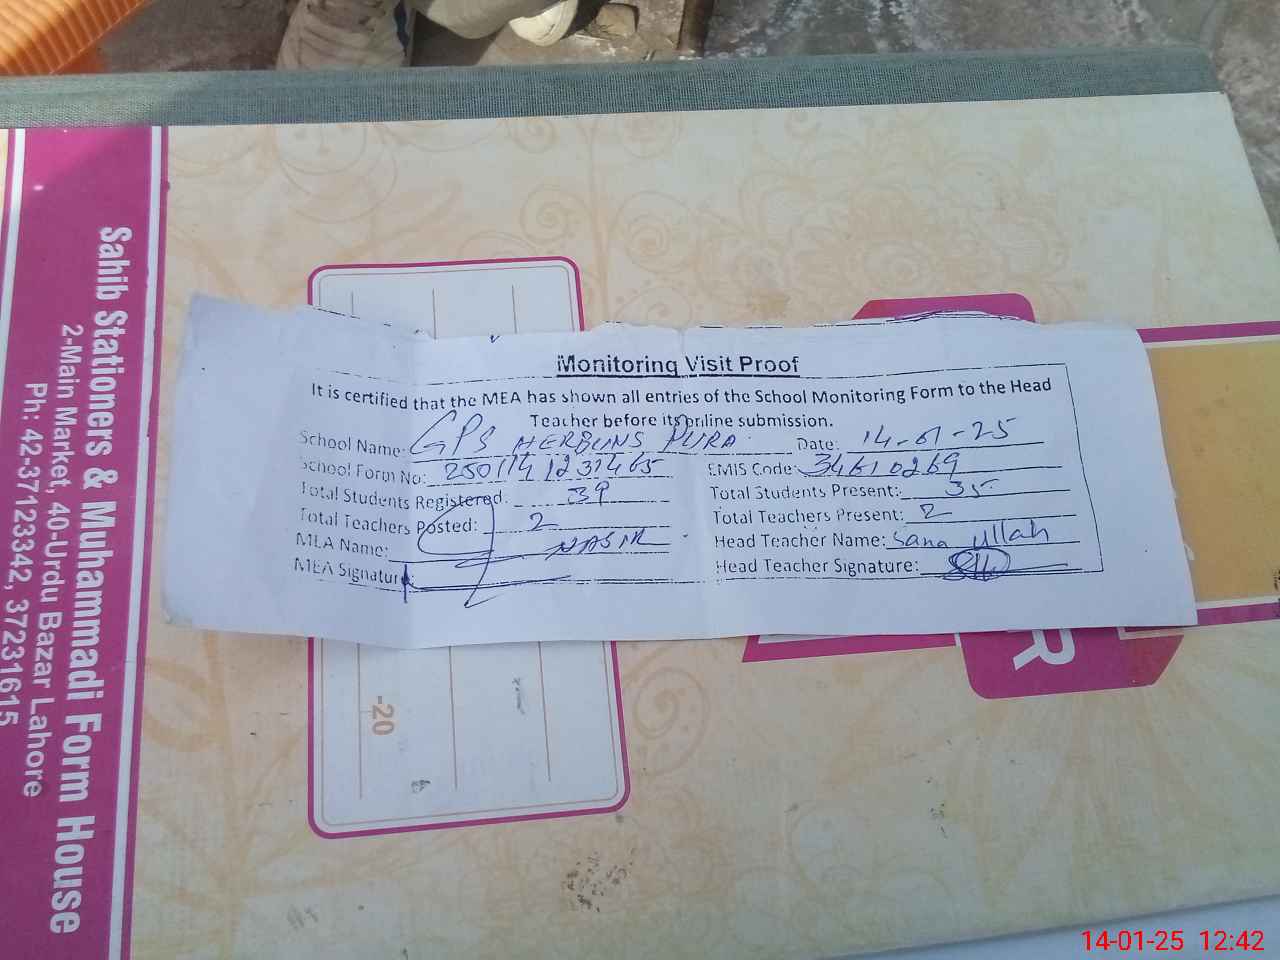 Monitoring Visit Proof
It is certified that the MEA has shown all entries of the School Monitoring Form to the Head
Teacher before its online submission.
School Name: GPS HERBUNS PURA Date: 14-01-25
School Form No: 250114 1231465 EMIS Code: 34610269
Total Students Registered: 39 Total Students Present: 35
Total Teachers Posted: 2 Total Teachers Present: 2
MEA Name: NASIR Head Teacher Name: Sana Ullah
MEA Signature: Head Teacher Signature:
Sahib Stationers & Muhammadi Form House
2-Main Market, 40-Urdu Bazar Lahore
Ph: 42-37123342, 37231615
-20
R
14-01-25 12:42